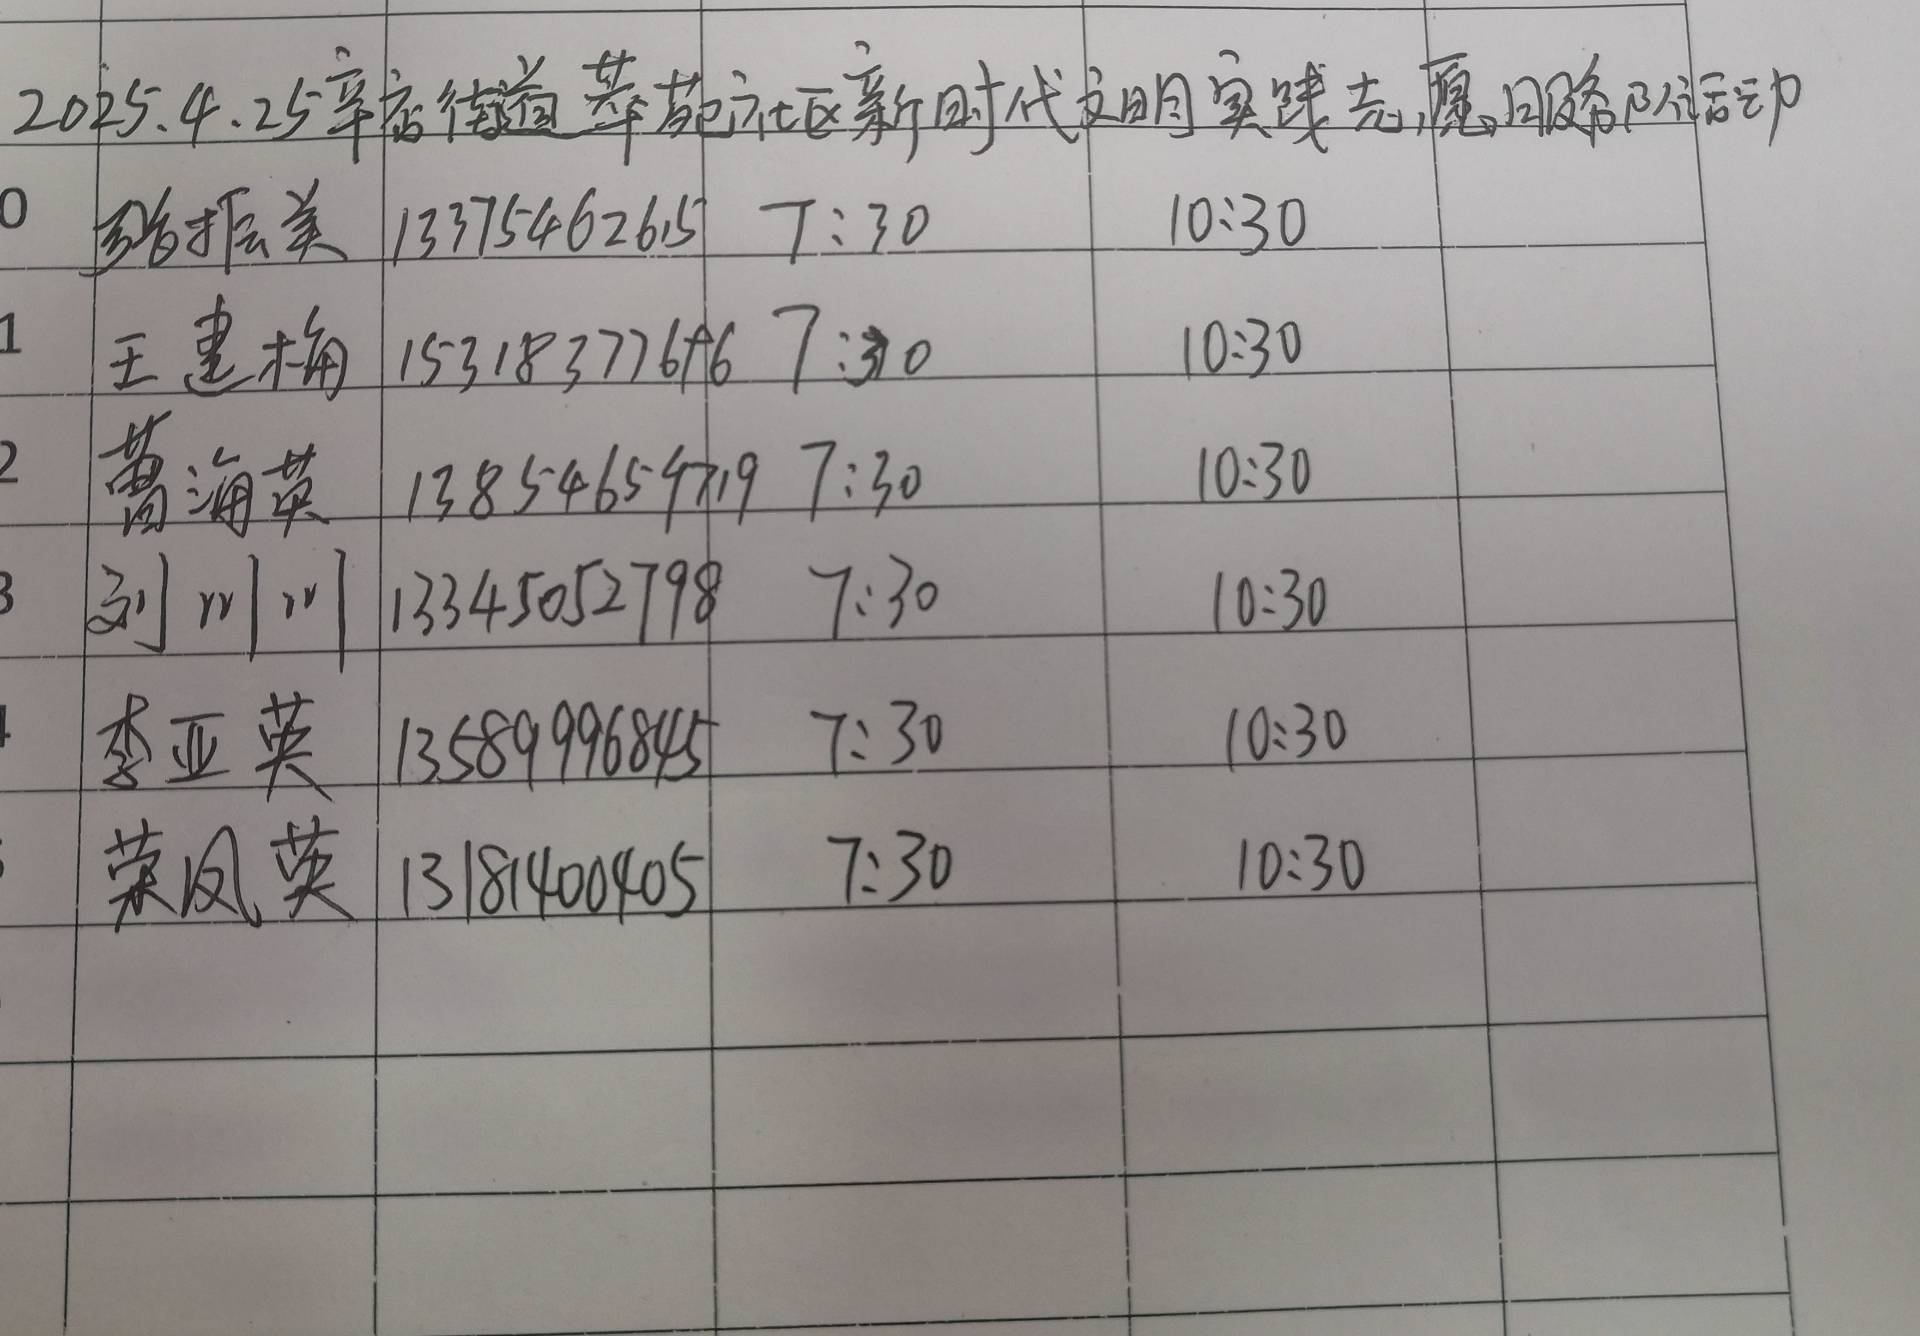 2025.4.25辛店街道莘苑社区新时代文明实践志愿服务队活动
0 路振美 13375462615 7:30 10:30
1 王建梅 7:30 10:30
2 海英 13854654719 7:30 10:30
3 刘川川 13345052798 7:30 10:30
李亚英 13589996845 7:30 10:30
荣凤英 13181400405 7:30 10:30